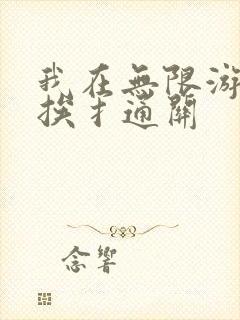 我在無限游
挨扌通關
念響